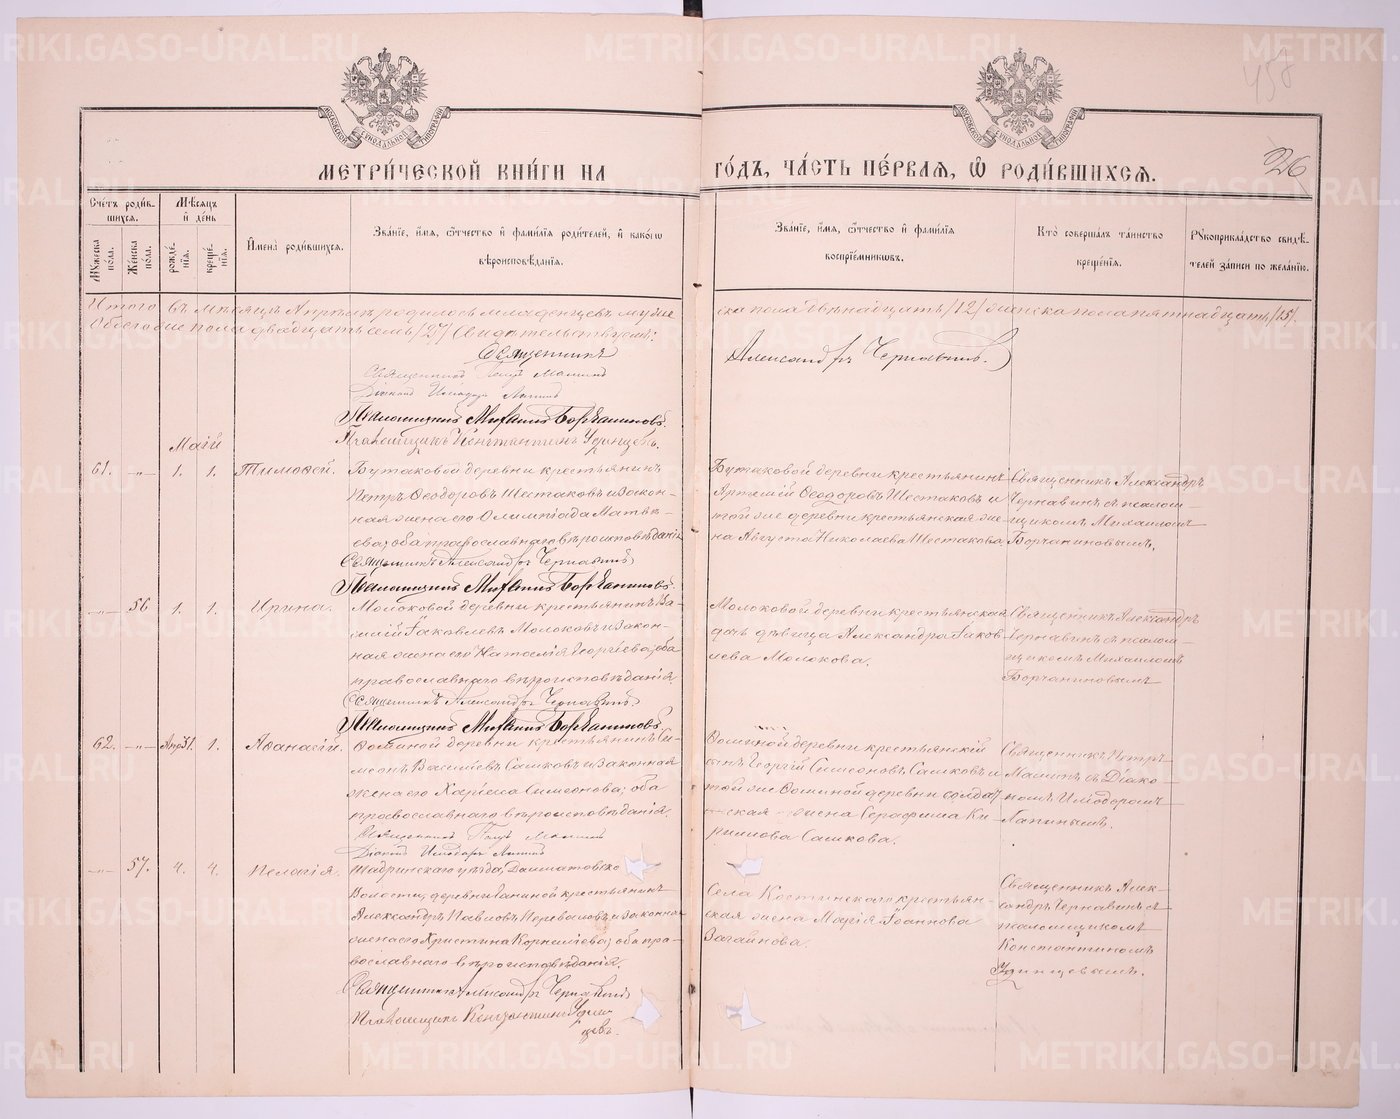 METRIKI.GASO-URAL.RU
450
МЕТРИ́ЧЕСКОЙ КНИ́ГИ НА ГО́ДЪ, ЧА́СТЬ ПЕ́РВАЯ, Ѡ РОДИ́ВШИХСЯ.
26
Сче́тъ роди́вшихся.
Мѣ́сяцъ и҆ де́нь
Мꙋ́жеска по́ла.
Же́нска по́ла.
рожде́нїя.
креще́нїя.
И҆мена̀ роди́вшихся.
Зва́нїе, и҆́мя, ѻ҆́тчество и҆ фами́лїя роди́телей, и҆ како́гѡ
вѣроисповѣ́данїя.
Зва́нїе, и҆́мя, ѻ҆́тчество и҆ фами́лїя
воспрїе́мниковъ.
Кто̀ соверша́лъ та́инство
креще́нїя.
Рꙋкоприкла́дство свидѣ́-
телей за́писи по жела́нїю.
Итого въ мѣсяцѣ Апрѣлѣ родилось младенцевъ муже
ска пола двѣнадцать /12/ женска пола пятнадцать /15/.
Обоего же пола двадцать семь /27/ Свидѣтельствуемъ:
Священникъ
Александръ Чернавинъ.
Священникъ Петръ Малинъ
Діаконъ Исидоръ Лапинъ
Псаломщикъ Михаилъ Борчаниновъ.
Псаломщикъ Константинъ Удинцевъ.
Маій
61. -„- 1. 1. Тимоѳей.
Бутаковой деревни крестьянинъ
Петръ Ѳеодоровъ Шестаковъ и закон-
ная жена его Олимпіада Матвѣ-
ева; оба православнаго вѣроисповѣданія
Священникъ Александръ Чернавинъ
Псаломщикъ Михаилъ Борчаниновъ.
Бутаковой деревни крестьянинъ
Артемій Ѳеодоровъ Шестаковъ и
той же деревни крестьянская же-
на Августа Николаева Шестакова
Священникъ Александръ
Чернавинъ съ псалом-
щикомъ Михаиломъ
Борчаниновымъ.
-„- 56 1. 1. Ирина.
Молоковой деревни крестьянинъ Ва-
силій Іаковлевъ Молоковъ и закон-
ная жена его Наталія Георгіева; оба
православнаго вѣроисповѣданія.
Священникъ Александръ Чернавинъ
Псаломщикъ Михаилъ Борчаниновъ.
Молоковой деревни крестьянская
дочь дѣвица Александра Іаков-
лева Молокова.
Священникъ Александръ
Чернавинъ съ псалом-
щикомъ Михаиломъ
Борчаниновымъ
62. -„- 1. Аѳанасій.
Ѳоминой деревни крестьянинъ Си-
меонъ Васильевъ Сашковъ и законная
жена его Харіесса Симеонова; оба
православнаго вѣроисповѣданія.
Священникъ Петръ Малинъ
Діаконъ Исидоръ Лапинъ
Ѳоминой деревни крестьянскій
сынъ Георгій Симеоновъ Сашковъ и
той же Ѳоминой деревни солдат-
ская жена Серафима Ки-
риллова Сашкова.
Священникъ Петръ
Малинъ съ Діако
номъ Исидоромъ
Лапинымъ.
-„- 57. 4. 4. Пелагія.
Шадринскаго уѣзда, Далматовско
Волости, деревни крестьянинъ
Александръ Павловъ Переваловъ, и законная
жена его Христина Корниліева; оба пра-
вославнаго вѣроисповѣданія.
Священникъ Александръ Чернавинъ
Псаломщикъ Константинъ Удин-
цевъ.
Села Костинскаго крестьян-
ская жена Марія Іоаннова
Загайнова.
Священникъ Алек-
сандръ Чернавинъ съ
псаломщикомъ
Константиномъ
Удинцевымъ.